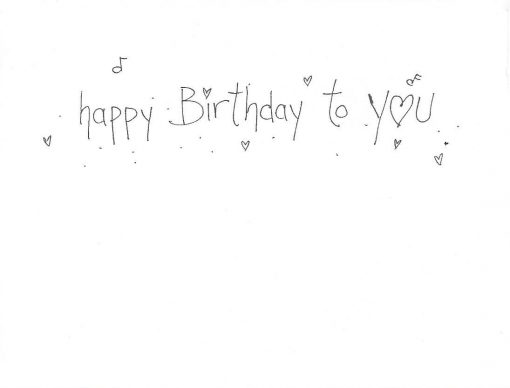 happy Birthday to you